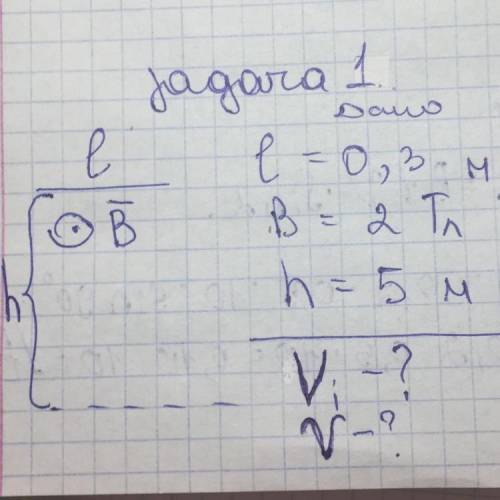 задача 1.
Дано
l
l = 0,3 м
B̅
B = 2 Тл
h
h = 5 м
Vi - ?
V - ?